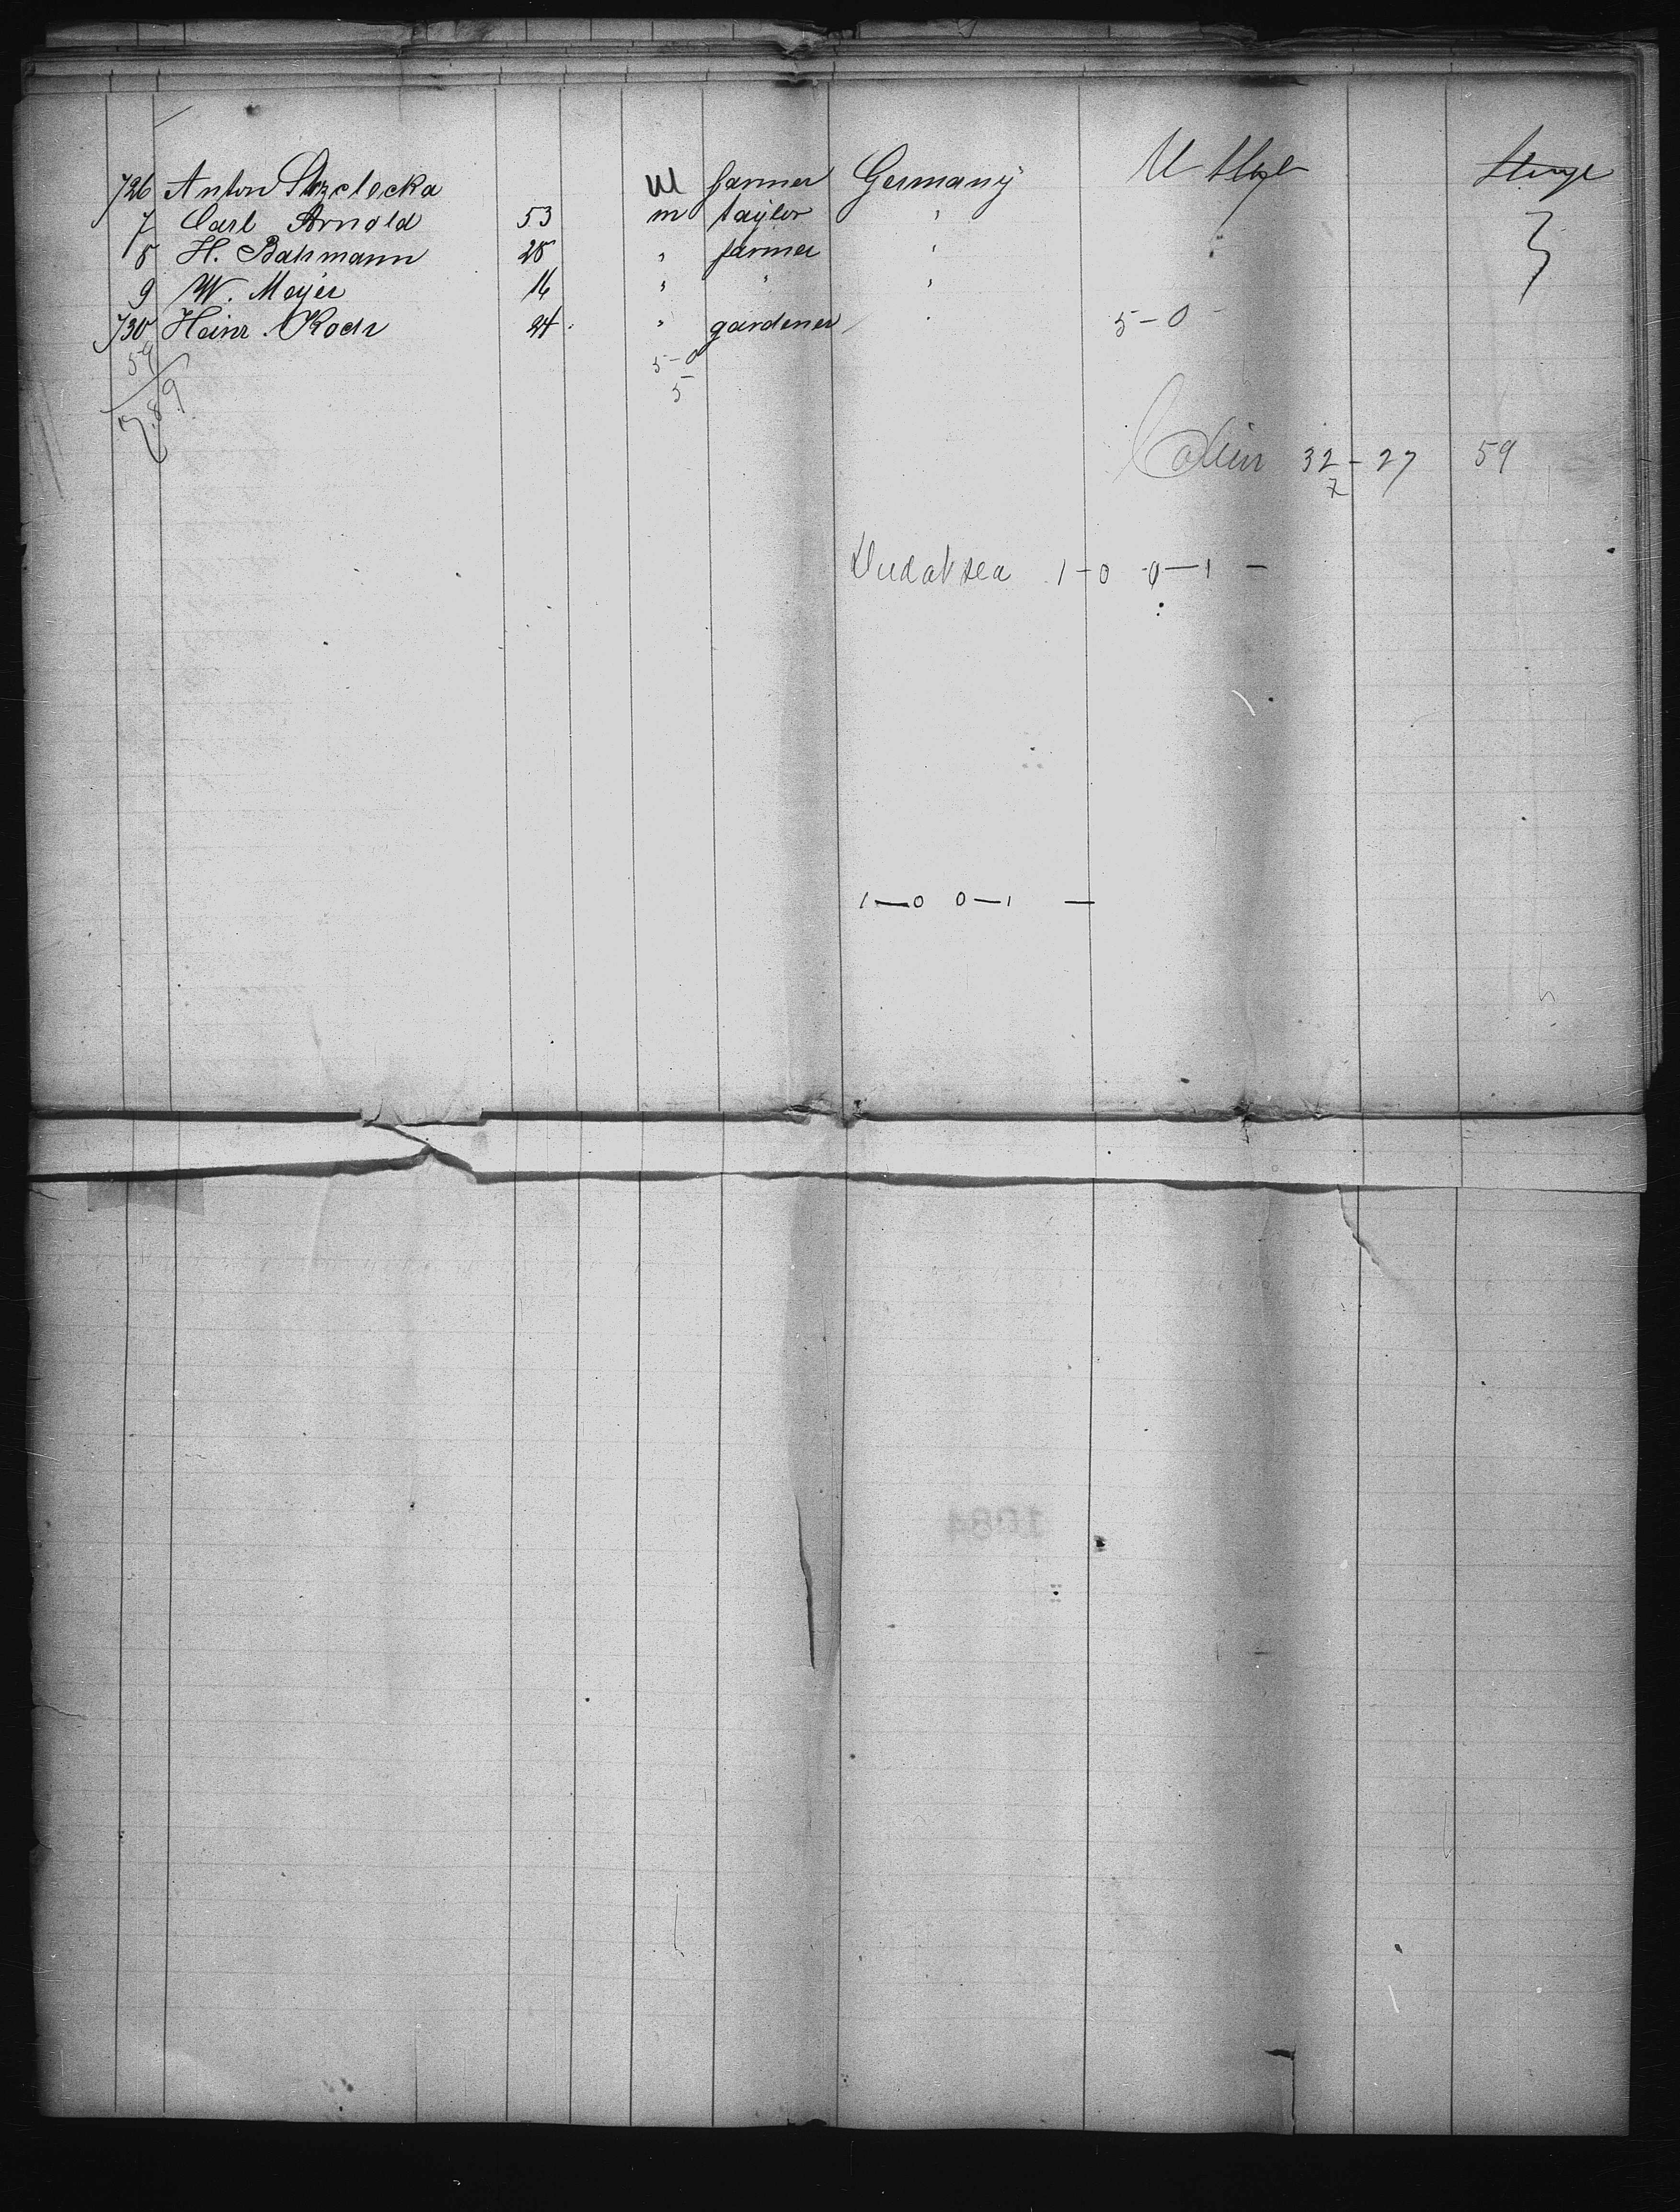 726 Anton Strzelecka m farmer Germany U States Steerage
7 Carl Arnold 53 m taylor "
8 H. Bahmann 28 " farmer "
9 W. Meyer 16 " " "
730 Heinr. Koch 24 " gardener " 5-0
59 5-0
789 5
Cabin 32-27 59
Died at sea 1-0 0-1 -
1-0 0-1 -
1084